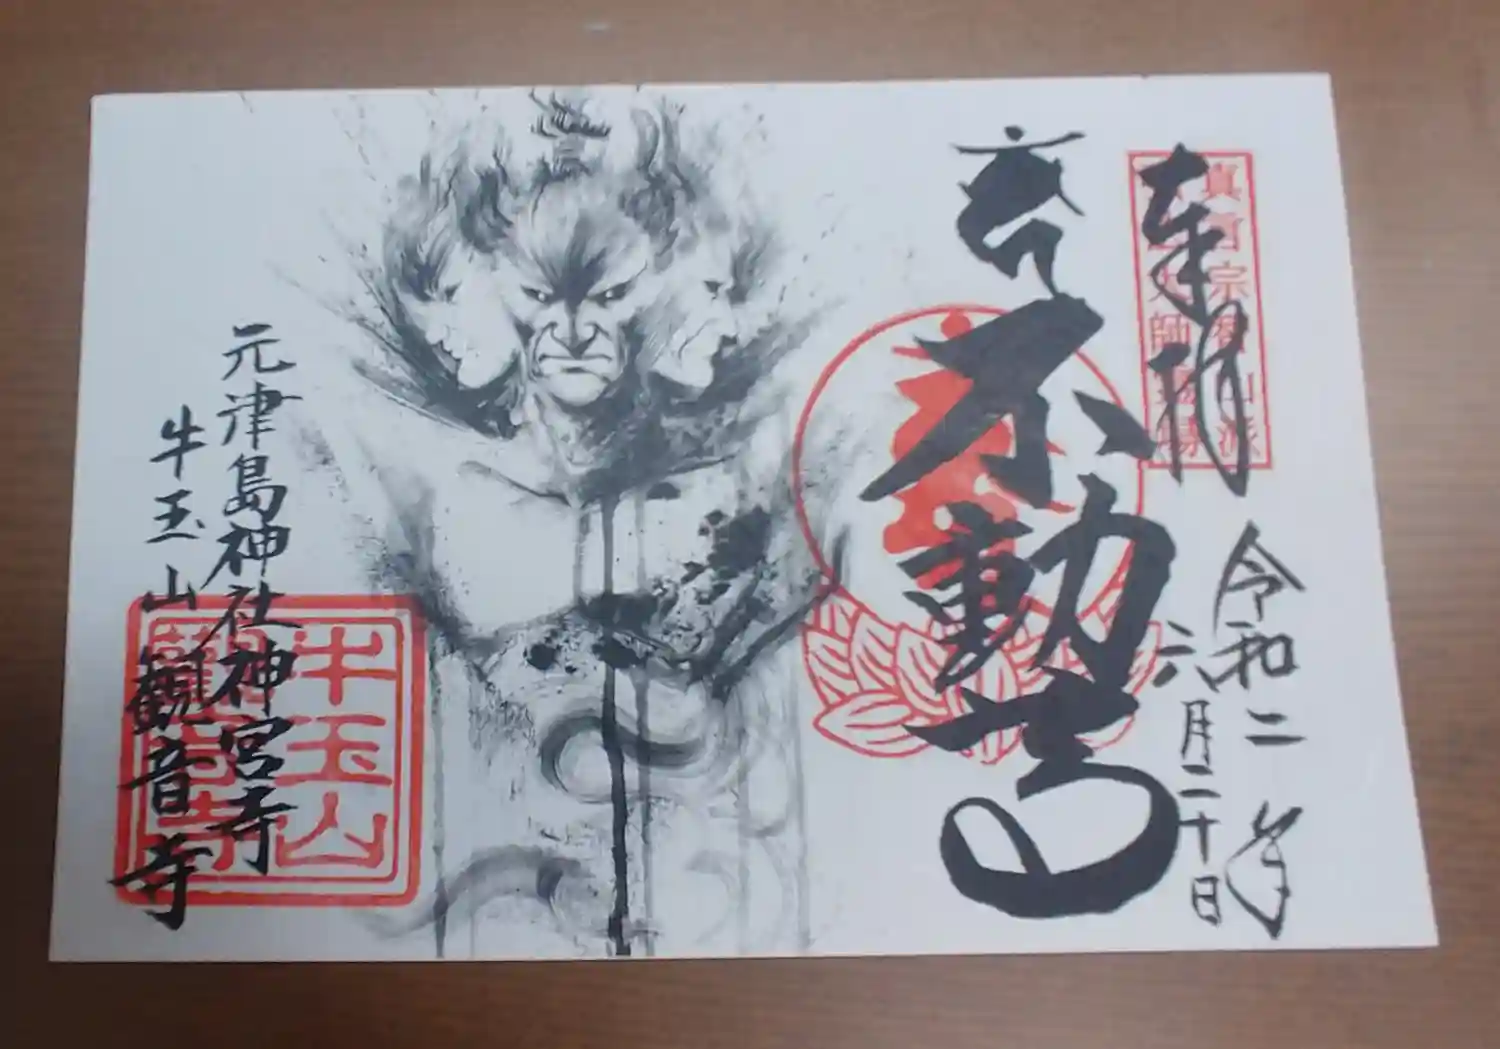 奉拝
真言宗智山派
大師
令和二年
六月二十日
不動尊
元津島神社神宮寺
牛玉山観音寺
牛玉山
觀音寺